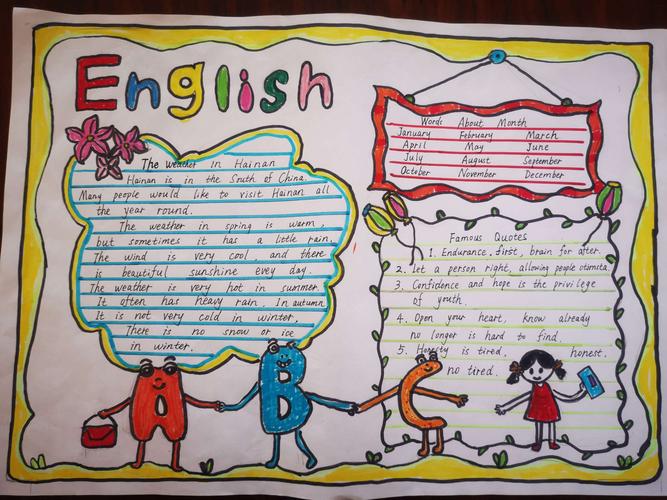 English
The weather in Hainan
Hainan is in the South of China.
Many people would like to visit Hainan all
the year round.
The weather in spring is warm,
but sometimes it has a little rain.
The wind is very cool, and there
is beautiful sunshine evey day.
The weather is very hot in summer.
It often has heavy rain. In autumn
It is not very cold in winter.
There is no snow or ice
in winter.
Words About Month
January February March
April May June
July August September
October November December
Famous Quotes
1. Endurance, first, brain for after.
2. Let a person right, allowing people otimita.
3. Confidence and hope is the privilege
of youth.
4. Open your heart, know already
no longer is hard to find.
5. Honesty is tired, honest.
no tired.
A B C